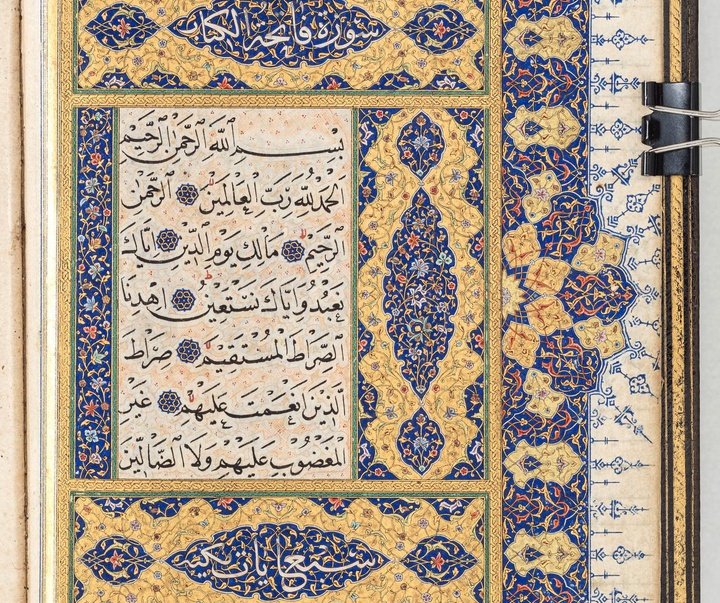 سورة فاتحة الكتاب
بِسْمِ ٱللَّهِ ٱلرَّحْمٰنِ ٱلرَّحِيمِ
اَلْحَمْدُ لِلّٰهِ رَبِّ الْعَالَمِينَ ۝ اَلرَّحْمٰنِ
ٱلرَّحِيمِ ۝ مَالِكِ يَوْمِ الدِّينِ ۝ اِيَّاكَ
نَعْبُدُ وَاِيَّاكَ نَسْتَعِينُ ۝ اِهْدِنَا
الصِّرَاطَ الْمُسْتَقِيمَ ۝ صِرَاطَ
الَّذِينَ اَنْعَمْتَ عَلَيْهِمْ ۝ غَيْرِ
الْمَغْضُوبِ عَلَيْهِمْ وَلَا الضَّالِّينَ
سبع ايات مكية